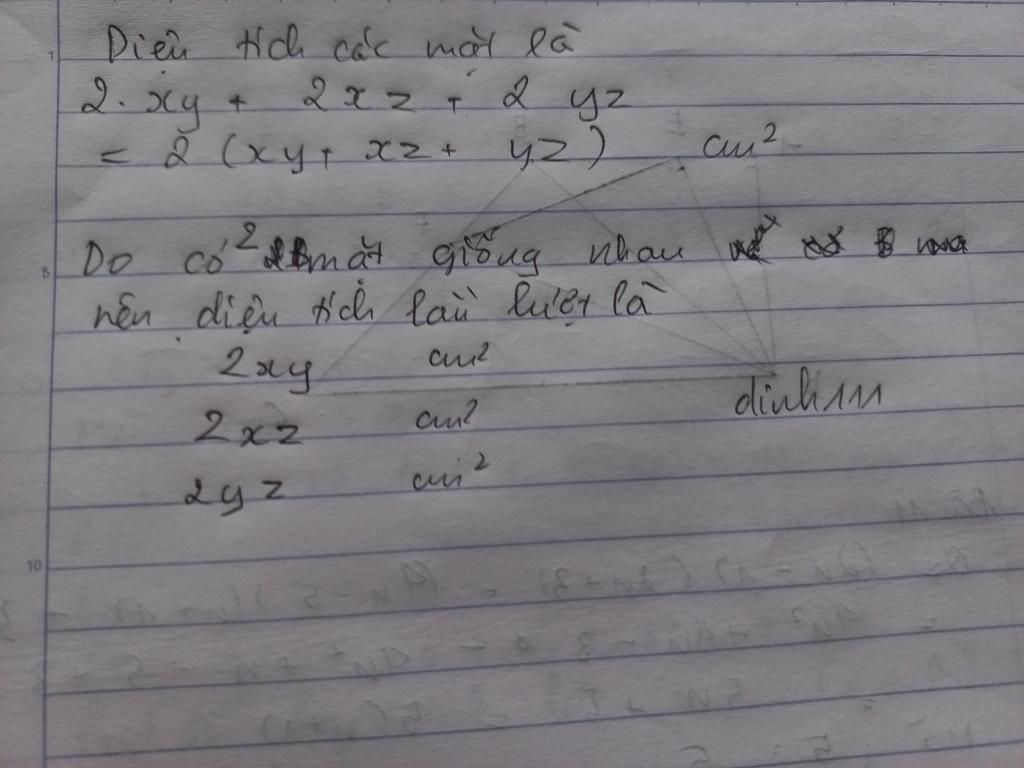 Diện tích các mặt là
2. xy + 2xz + 2 yz
= 2 (xy + xz + yz) cm²
Do có 2 mặt giống nhau
nên diện tích lần lượt là
2xy cm²
2xz cm²
dinh111
2yz cm²